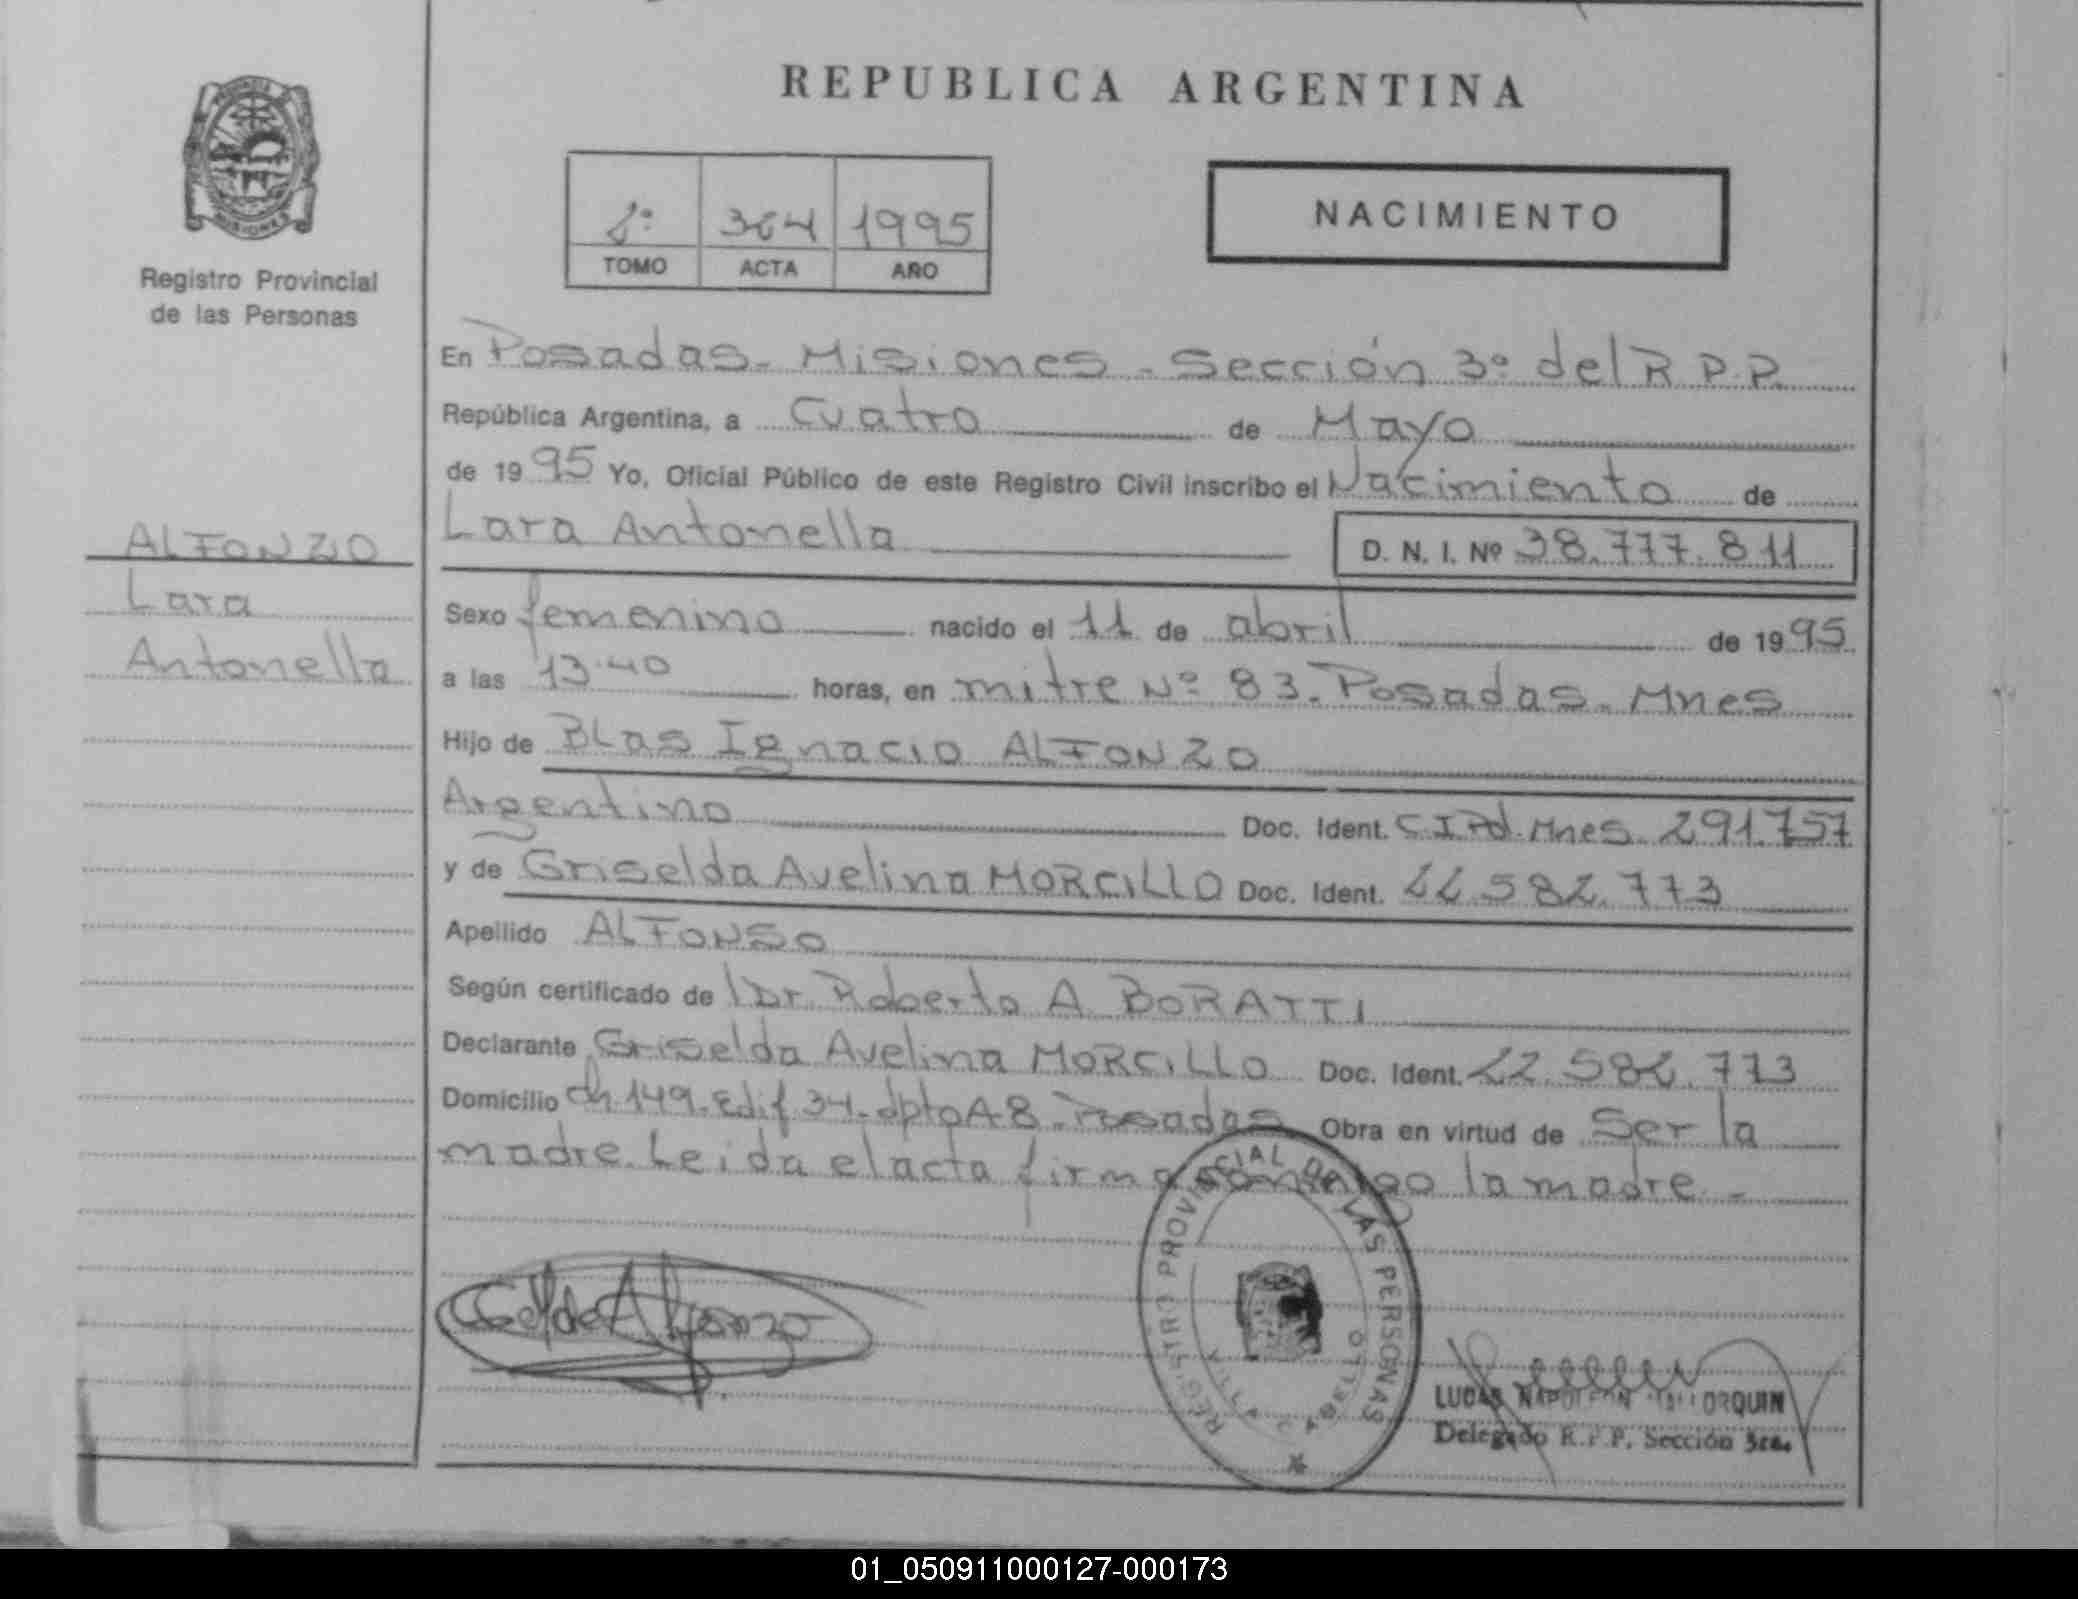 REPUBLICA ARGENTINA
MISIONES
Registro Provincial
de las Personas
2º 364 1995
TOMO ACTA AÑO
NACIMIENTO
En Posadas - Misiones - Sección 3º del R.P.P.
República Argentina, a Cuatro de Mayo
de 1995 Yo, Oficial Público de este Registro Civil inscribo el Nacimiento de
Lara Antonella D. N. I. Nº 38.777.811
ALFONZO
Lara
Antonella
Sexo femenino nacido el 11 de abril de 1995
a las 13.40 horas, en mitre Nº 83. Posadas. Mnes
Hijo de Blas Ignacio ALFONZO
Argentino Doc. Ident. C.I.Pol. Mnes. 291.757
y de Griselda Avelina MORCILLO Doc. Ident. 22.582.773
Apellido ALFONSO
Según certificado de Dr. Roberto A BORATTI
Declarante Griselda Avelina MORCILLO Doc. Ident. 22.582.773
Domicilio ch. 149. Edif. 34. dpto A8. Posadas Obra en virtud de Ser la
madre. Leida el acta firma conmigo la madre. -
REGISTRO PROVINCIAL DE LAS PERSONAS
VILLA CABELLO
LUCAS NAPOLEON
Delegado R.P.P. Sección 3ra.
01_050911000127-000173